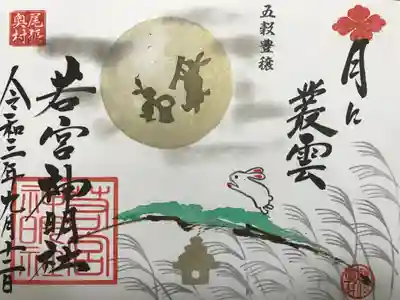 月に
叢雲
五穀豊穣
尾張
奥村
若宮神明社
令和三年九月十二日